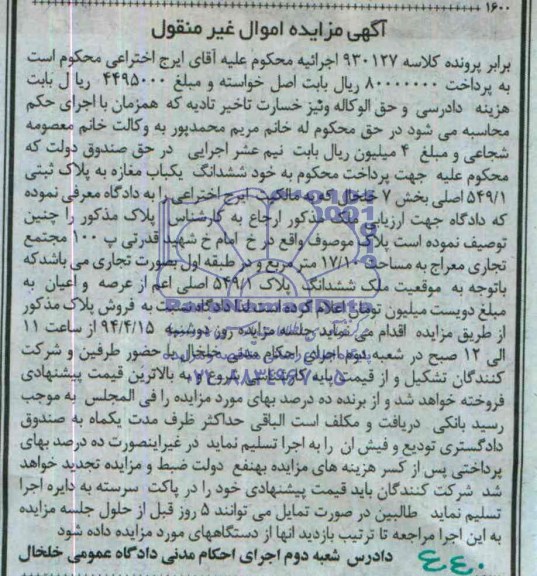 ۱۶۰۰
آگهی مزایده اموال غیر منقول
برابر پرونده کلاسه ۹۳۰۱۲۷ اجرائیه محکوم علیه آقای ایرج اختراعی محکوم است
به پرداخت ۸۰۰۰۰۰۰۰ ریال بابت اصل خواسته و مبلغ ۴۴۹۵۰۰۰ ریال بابت
هزینه دادرسی و حق الوکاله ونیز خسارت تاخیر تادیه که همزمان با اجرای حکم
محاسبه می شود در حق محکوم له خانم مریم محمدپور به وکالت خانم معصومه
شجاعی و مبلغ ۴ میلیون ریال بابت نیم عشر اجرایی در حق صندوق دولت که
محکوم علیه جهت پرداخت محکوم به خود ششدانگ یکباب مغازه به پلاک ثبتی
۵۴۹/۱ اصلی بخش ۷ خلخال که به مالکیت ایرج اختراعی را به دادگاه معرفی نموده
که دادگاه جهت ارزیابی ملک مذکور ارجاع به کارشناس پلاک مذکور را چنین
توصیف نموده است پلاک موصوف واقع در خ امام خ شهید قدرتی پ ۱۰۰ مجتمع
تجاری معراج به مساحت ۱۷/۱۰ متر مربع و در طبقه اول بصورت تجاری می باشدکه
باتوجه به موقعیت ملک ششدانگ پلاک ۵۴۹/۱ اصلی اعم از عرصه و اعیان به
مبلغ دویست میلیون تومان اعلام کرده است لذا دادگاه نسبت به فروش پلاک مذکور
از طریق مزایده اقدام می نماید جلسه مزایده روز دوشنبه ۹۴/۴/۱۵ از ساعت ۱۱
الی ۱۲ صبح در شعبه دوم اجرای احکام مدنی خلخال با حضور طرفین و شرکت
کنندگان تشکیل و از قیمت پایه کارشناسی شروع و به بالاترین قیمت پیشنهادی
فروخته خواهد شد و از برنده ده درصد بهای مورد مزایده را فی المجلس به موجب
رسید بانکی دریافت و مکلف است الباقی حداکثر ظرف مدت یکماه به صندوق
دادگستری تودیع و فیش ان را به اجرا تسلیم نماید در غیراینصورت ده درصد بهای
پرداختی پس از کسر هزینه های مزایده بهنفع دولت ضبط و مزایده تجدید خواهد
شد شرکت کنندگان باید قیمت پیشنهادی خود را در پاکت سرسته به دایره اجرا
تسلیم نماید طالبین در صورت تمایل می توانند ۵ روز قبل از حلول جلسه مزایده
به این اجرا مراجعه تا ترتیب بازدید انها از دستگاههای مورد مزایده داده شود
دادرس شعبه دوم اجرای احکام مدنی دادگاه عمومی خلخال
۴۴۰